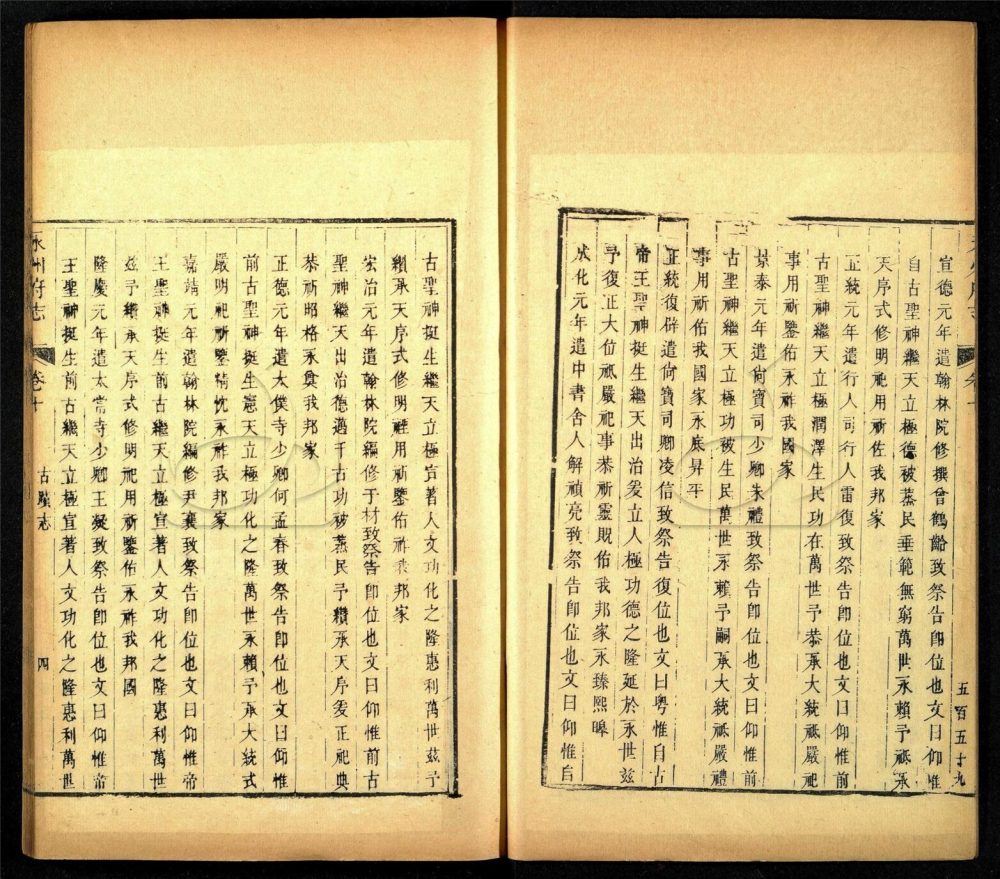 五百五十九
宣德元年遣翰林院修撰曾鶴齡致祭告即位也文曰仰惟
自古聖神繼天立極德被蒸民垂範無窮萬世永賴予祗承
天序式修明祀用祈佐我邦家
正統元年遣行人司行人雷復致祭告即位也文曰仰惟前
古聖神繼天立極潤澤生民功在萬世予恭承大統祗嚴祀
事用祈鑒佑永祚我國家
景泰元年遣尚寶司少卿朱禮致祭告即位也文曰仰惟前
古聖神繼天立極功被生民萬世永賴予嗣承大統祗嚴禮
事用祈佑我國家永底昇平
正統復辟遣尚寶司卿凌信致祭告復位也文曰粵惟自古
帝王聖神挺生繼天出治爰立人極功德之隆延於永世茲
予復正大位祗嚴祀事恭祈靈貺佑我邦家永臻熙皞
成化元年遣中書舍人解禎亮致祭告即位也文曰仰惟自
古聖神挺生繼天立極寔著人文功化之隆惠利萬世茲予
纘承天序式修明禋用祈鑒佑祚我邦家
宏治元年遣翰林院編修于材致祭告即位也文曰仰惟前古
聖神繼天出治德過千古功被蒸民予纘承天序爰正祀典
恭祈昭格永奠我邦家
正德元年遣太僕寺少卿何孟春致祭告即位也文曰仰惟
前古聖神挺生憲天立極功化之隆萬世永賴予承大統式
嚴明祀祈鑒精忱永祚我邦家
嘉靖元年遣翰林院編修尹襄致祭告即位也文曰仰惟帝
王聖神挺生前古繼天立極宣著人文功化之隆惠利萬世
茲予纘承天序式修明祀用祈鑒佑永祚我邦國
隆慶元年遣太常寺少卿王凝致祭告即位也文曰仰惟帝
王聖神挺生前古繼天立極宣著人文功化之隆惠利萬世
永州府志
卷十
古蹟志
四